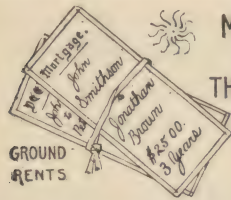 M
TH
Mortgage.
John
Smithson
to
Jonathan
Brown
$2500.
3 Years
GROUND
RENTS